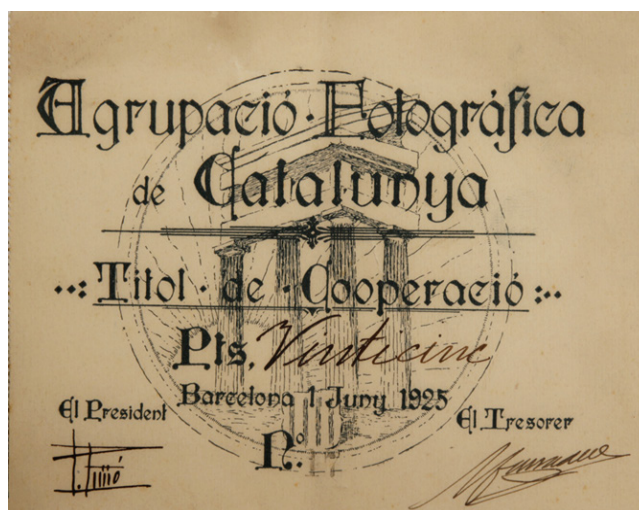 Agrupació · Fotogràfica
de Catalunya
··: Titol · de · Cooperació :··
Pts. Vinticinc
Barcelona 1 Juny 1925
El President
El Tresorer
N.º